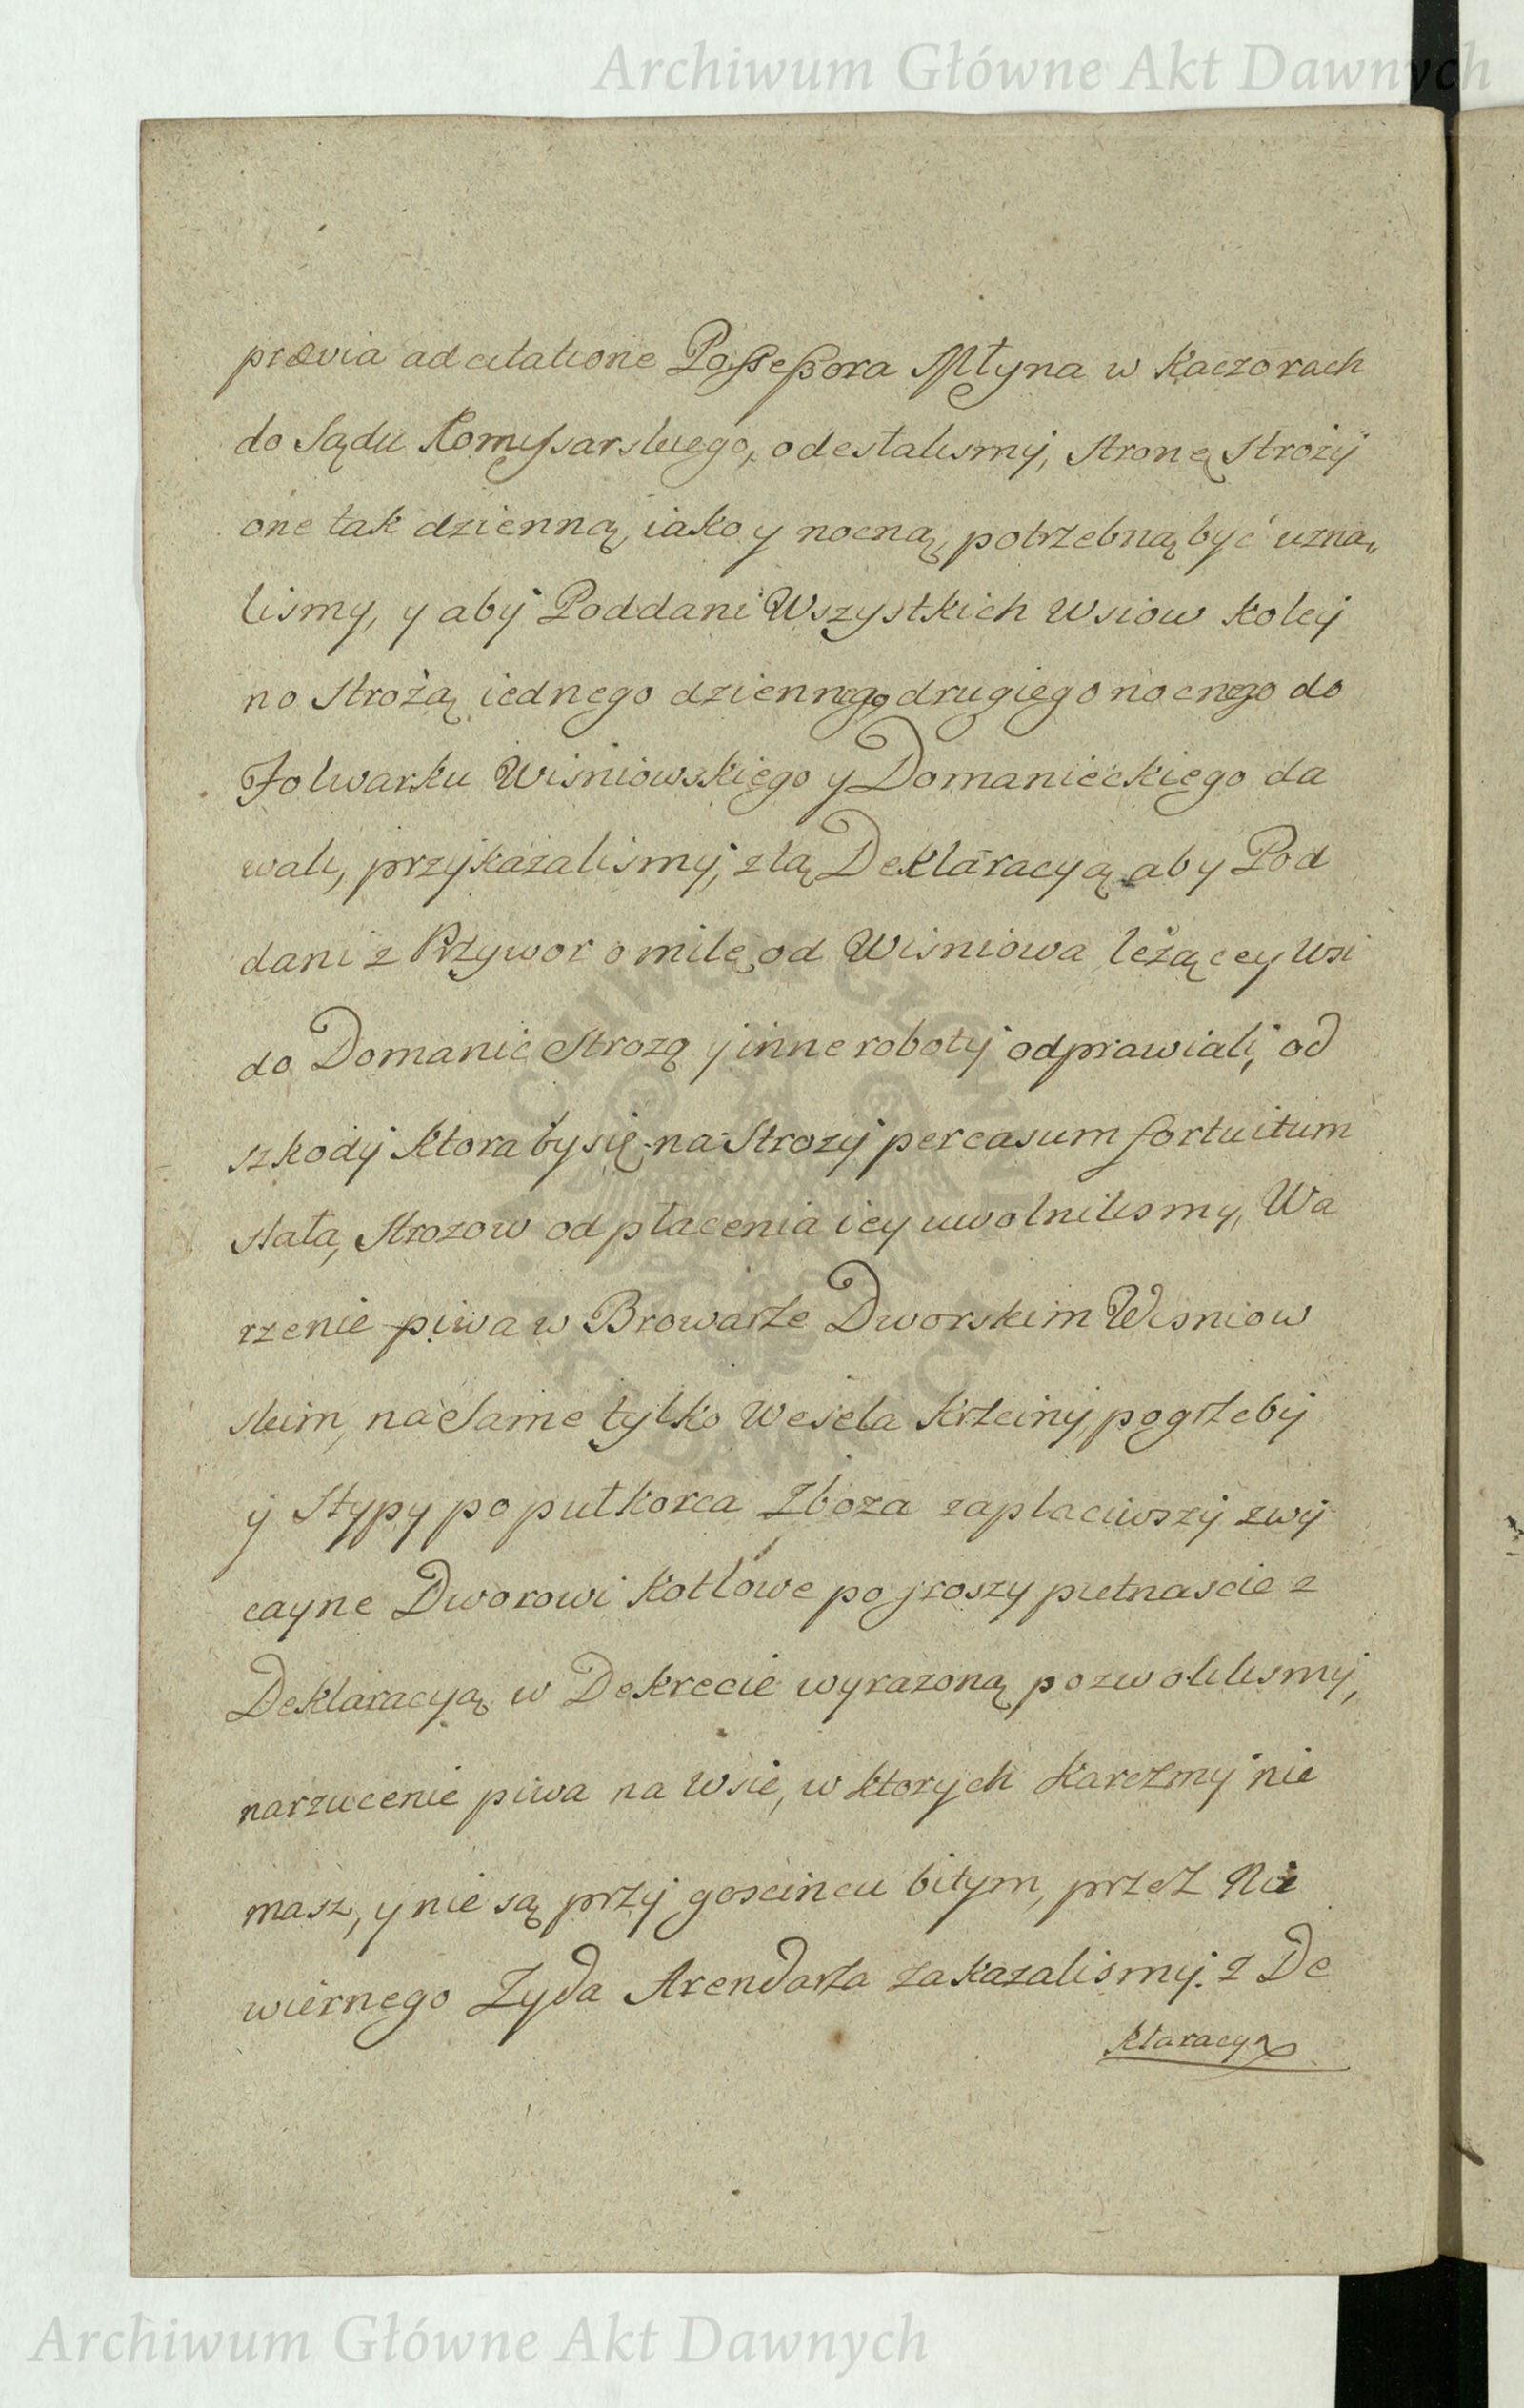 Archiwum Główne Akt Dawnych
prævia adcitatione Possessora Młyna w Kaczorach
do Sądu Komissarskiego, odesłalismy, Stronę Strozy
one tak dzienną, iako y nocną, potrzebną być uzna„
lismy, y aby Poddani Wszystkich Wsiow koley
no Strożą iednego dziennego drugiego nocnego do
Folwarku Wisniowskiego y Domanieckiego da
wali, przykazalismy, z tą Deklaracyą aby Pod
dani z Przywor o milę od Wisniowa leżącey Wsi
do Domanic Strozą y inne roboty odprawiali, od
szkody ktora by się na Strozy per casum fortuitum
stała, Strozow od płacenia iey uwolnilismy, Wa
rzenie piwa w Browarze Dworskim Wisniow
skim, na Same tylko Wesela Krzciny, pogrzeby
y Stypy po pułkorca Zboza zapłaciwszy zwy
cayne Dworowi Kotłowe po groszy pietnascie z
Deklaracyą w Dekrecie wyrazoną pozwolilismy,
narzucenie piwa na Wsie, w ktorych Karczmy nie
masz, y nie są przy goscincu bitym, przez Nie
wiernego Zyda Arendarza zakazalismy. z De
klaracyą
ARCHIWUM GŁÓWNE AKT DAWNYCH
Archiwum Główne Akt Dawnych